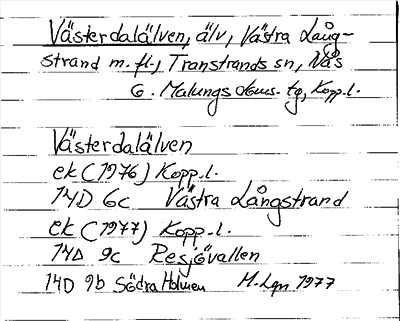 Västerdalälven, älv, Västra Lång-
strand m.fl., Transtrands sn, Nås
o. Malungs doms. tg, Kopp.l.
Västerdalälven
ek (1976) Kopp.l.
14D 6c Västra Långstrand
ek (1977) Kopp.l.
14D 9c Resjövallen
14D 9b Södra Holmen M.Lgn 1977